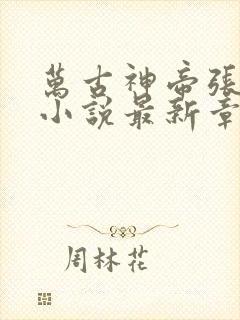 萬古神帝張
小說最新章
周林花